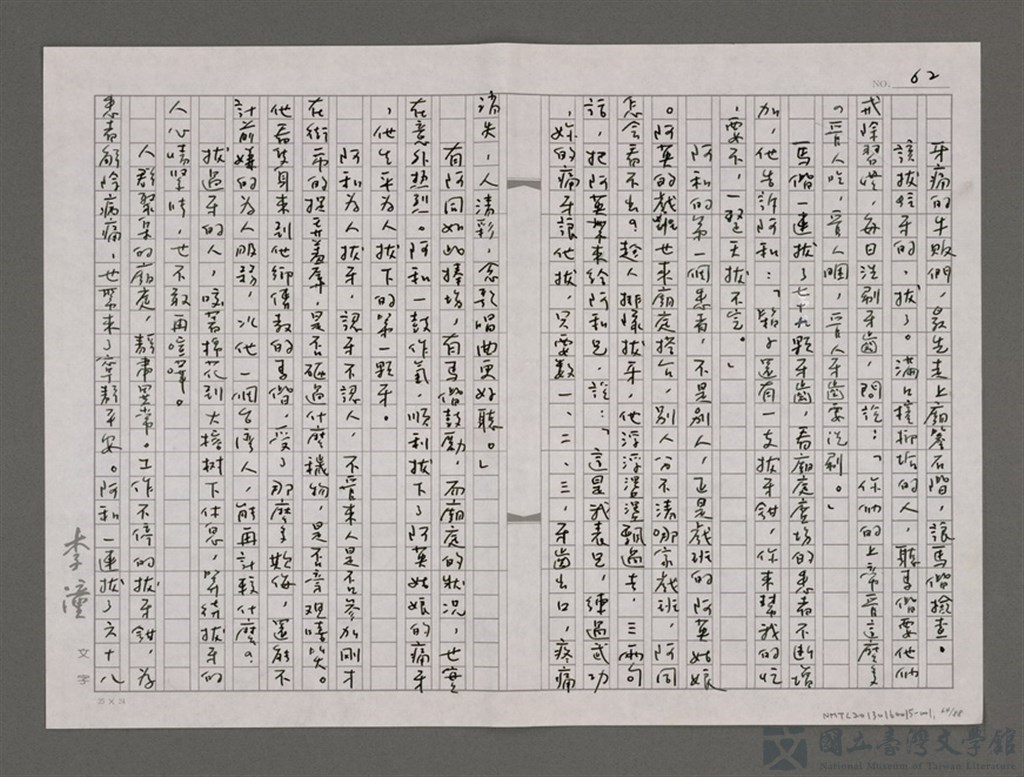 NO. 62
牙痛的牛販們，最先走上廟簷石階，讓馬偕撿查。
該拔蛀牙的，拔了。滿口檳榔垢的人，聽馬偕要他們
戒除習慣，每日洗刷牙齒，問說：「你們的上帝管這麼多
？管人吃，管人睏，管人牙齒要洗刷。」
馬偕一連拔了七十九顆牙齒，看廟庭廣場的患者不斷增
加，他告訴阿和：「鞍子還有一支拔牙鉗，你來幫我的忙
，要不，一整天拔不完。」
阿和的第一個患者，不是別人，正是戲班的阿英姑娘
。阿英的戲班也來廟庭搭台，別人分不清哪家戲班，阿同
怎會看不出？趁人排隊拔牙，他浮浮盪盪飄過去，三兩句
話，把阿英架來給阿和兄，說：「這是我表兄，練過武功
，妳的痛牙讓他拔，只要數一、二、三，牙齒出口，疼痛
消失，人清彩，念歌唱曲更好聽。」
有阿同如此捧場，有馬偕鼓勵，而廟庭的狀況，也實
在意外熱烈。阿和一鼓作氣，順利拔下了阿英姑娘的痛牙
，他生平為人拔下的第一顆牙。
阿和為人拔牙，認牙不認人，不管來人是否參加剛才
在街市的捉弄羞辱，是否砸過什麼穢物，是否旁觀嘻笑。
他看隻身來到他鄉傳教的馬偕，受了那麼多欺侮，還能不
計前嫌的為人服務，以他一個台灣人，能再計較什麼？
拔過牙的人，咬著棉花到大榕樹下休息，等待拔牙的
人心情緊張，也不敢再喧嘩。
人群聚集的廟庭，靜肅異常。工作不停的拔牙鉗，為
患者解除病痛，也帶來了寧靜平安。阿和一連拔了六十八
李潼
文字
25 × 24
NMTL20130160015-001, 64/88
國立臺灣文學館
National Museum of Taiwan Literature